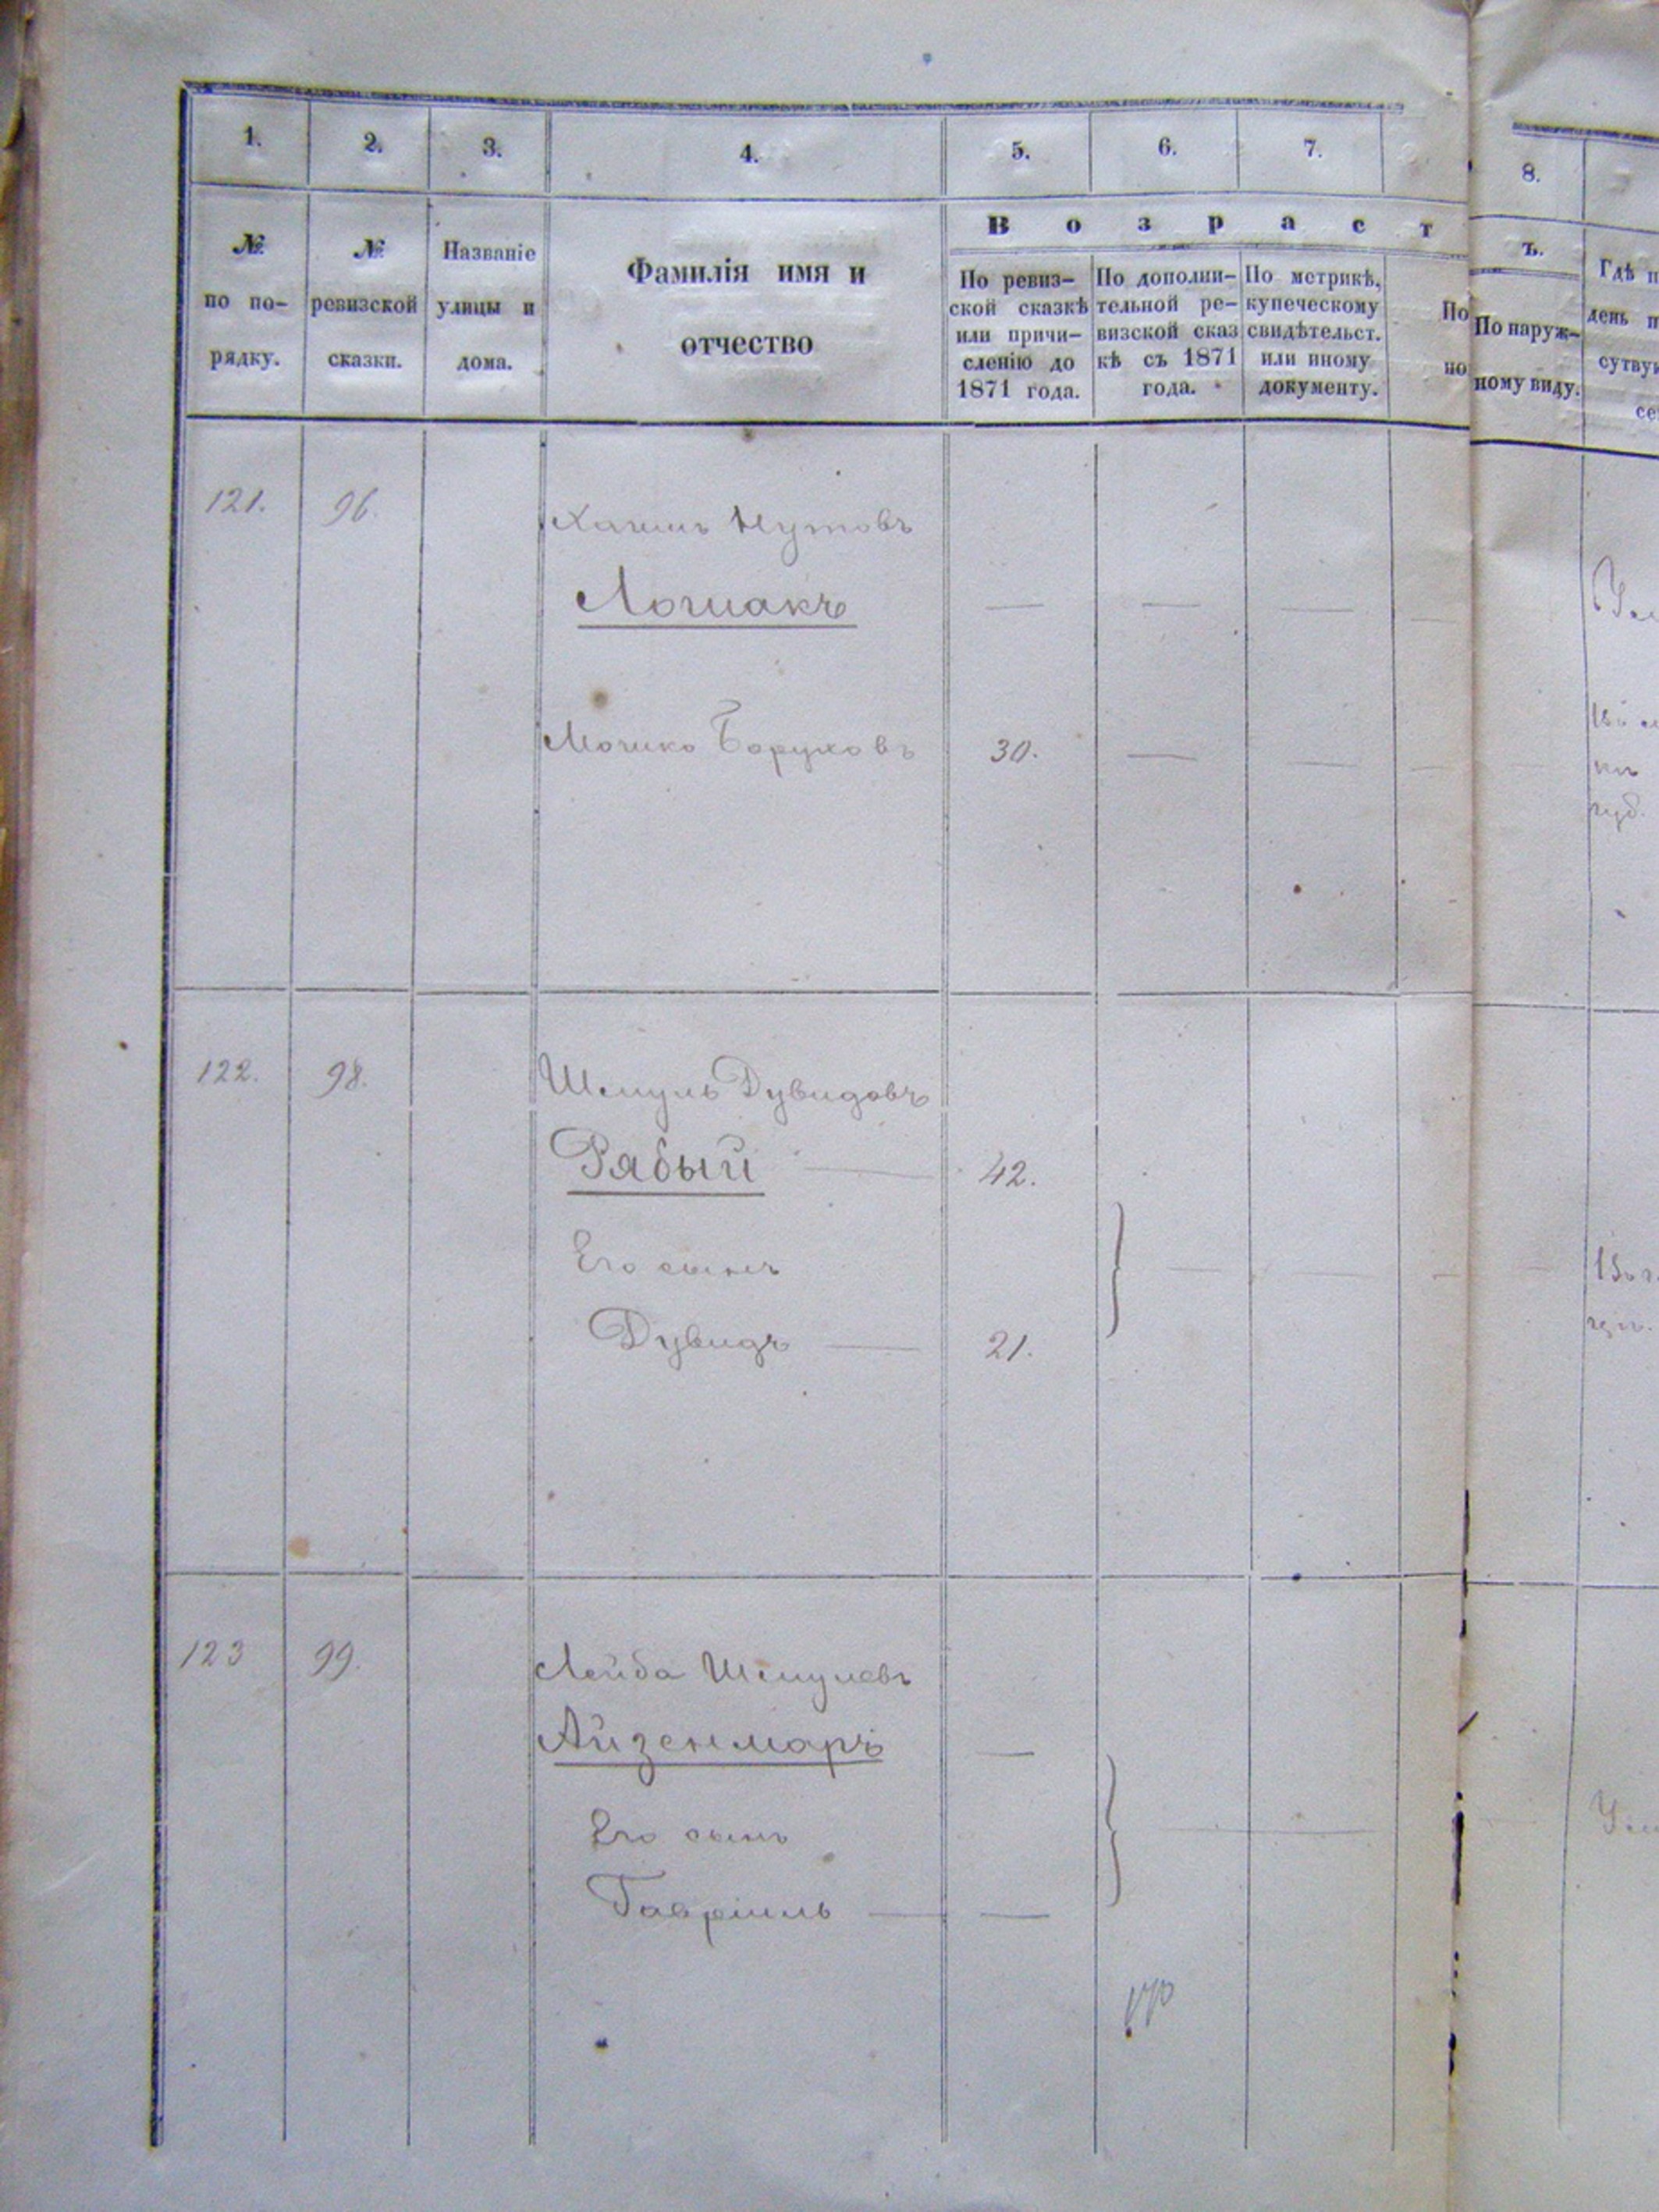 1. 2. 3. 4. 5. 6. 7. 8.
№ по по- рядку.
№ ревизской сказки.
Названіе улицы и дома.
Фамилія имя и
отчество
Возраст
ъ.
По ревиз-
ской сказкѣ
или причи-
сленію до
1871 года.
По дополни-
тельной ре-
визской сказ
кѣ съ 1871
года.
По метрикѣ,
купеческому
свидѣтельст.
или иному
документу.
По
но
По наруж-
ному виду.
Гдѣ п
день п
сутву
се
121. 96. Хаимъ Нутовъ
Лошакъ — — —
Мошко Боруховъ 30. — —
губ.
122. 98. Шмуль Дувидовъ
Рябый — 42.
Его сынъ
Дувидъ — 21.
123 99. Лейба Шмулевъ
Айзенмаръ —
Его сынъ
Гавріиль — —